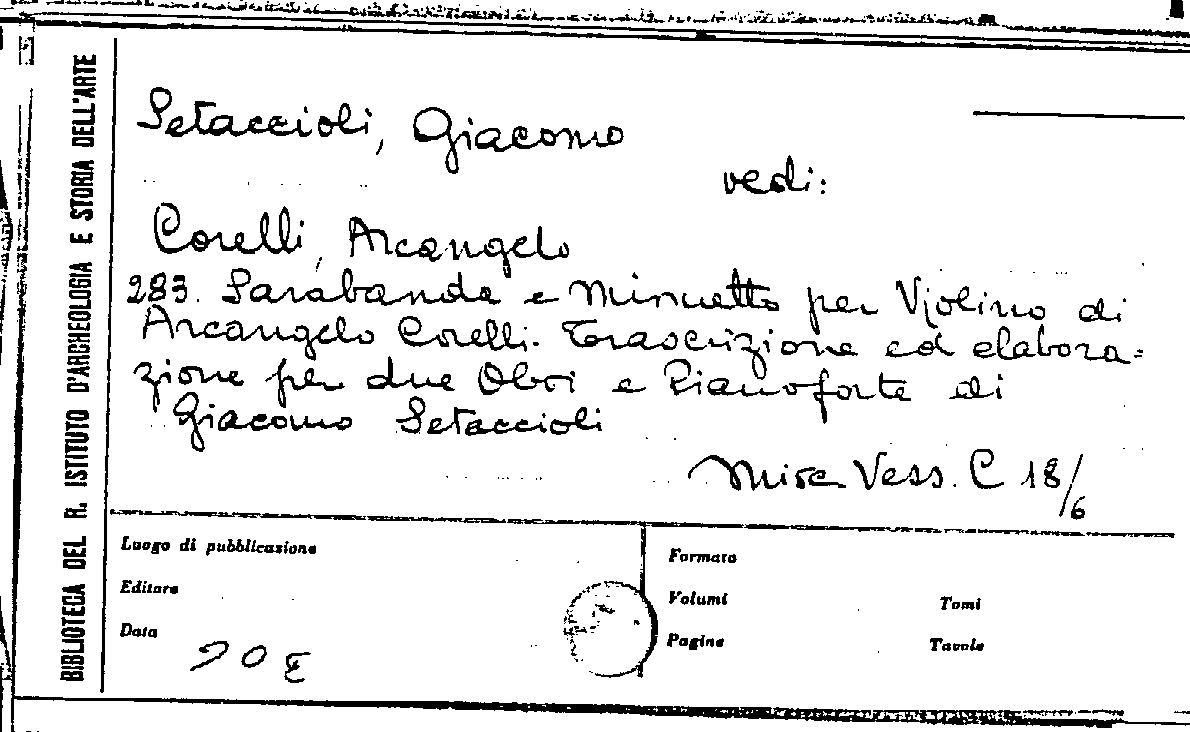 BIBLIOTECA DEL R. ISTITUTO D'ARCHEOLOGIA E STORIA DELL'ARTE
Setaccioli, Giacomo
vedi:
Corelli, Arcangelo
283. Sarabanda e Minuetto per Violino di
Arcangelo Corelli. Trascrizione ed elabora=
zione per due Oboi e Pianoforte di
Giacomo Setaccioli
Vess. C 18/6
Luogo di pubblicazione
Editore
Data
Formato
Volumi
Tomi
Pagine
Tavole